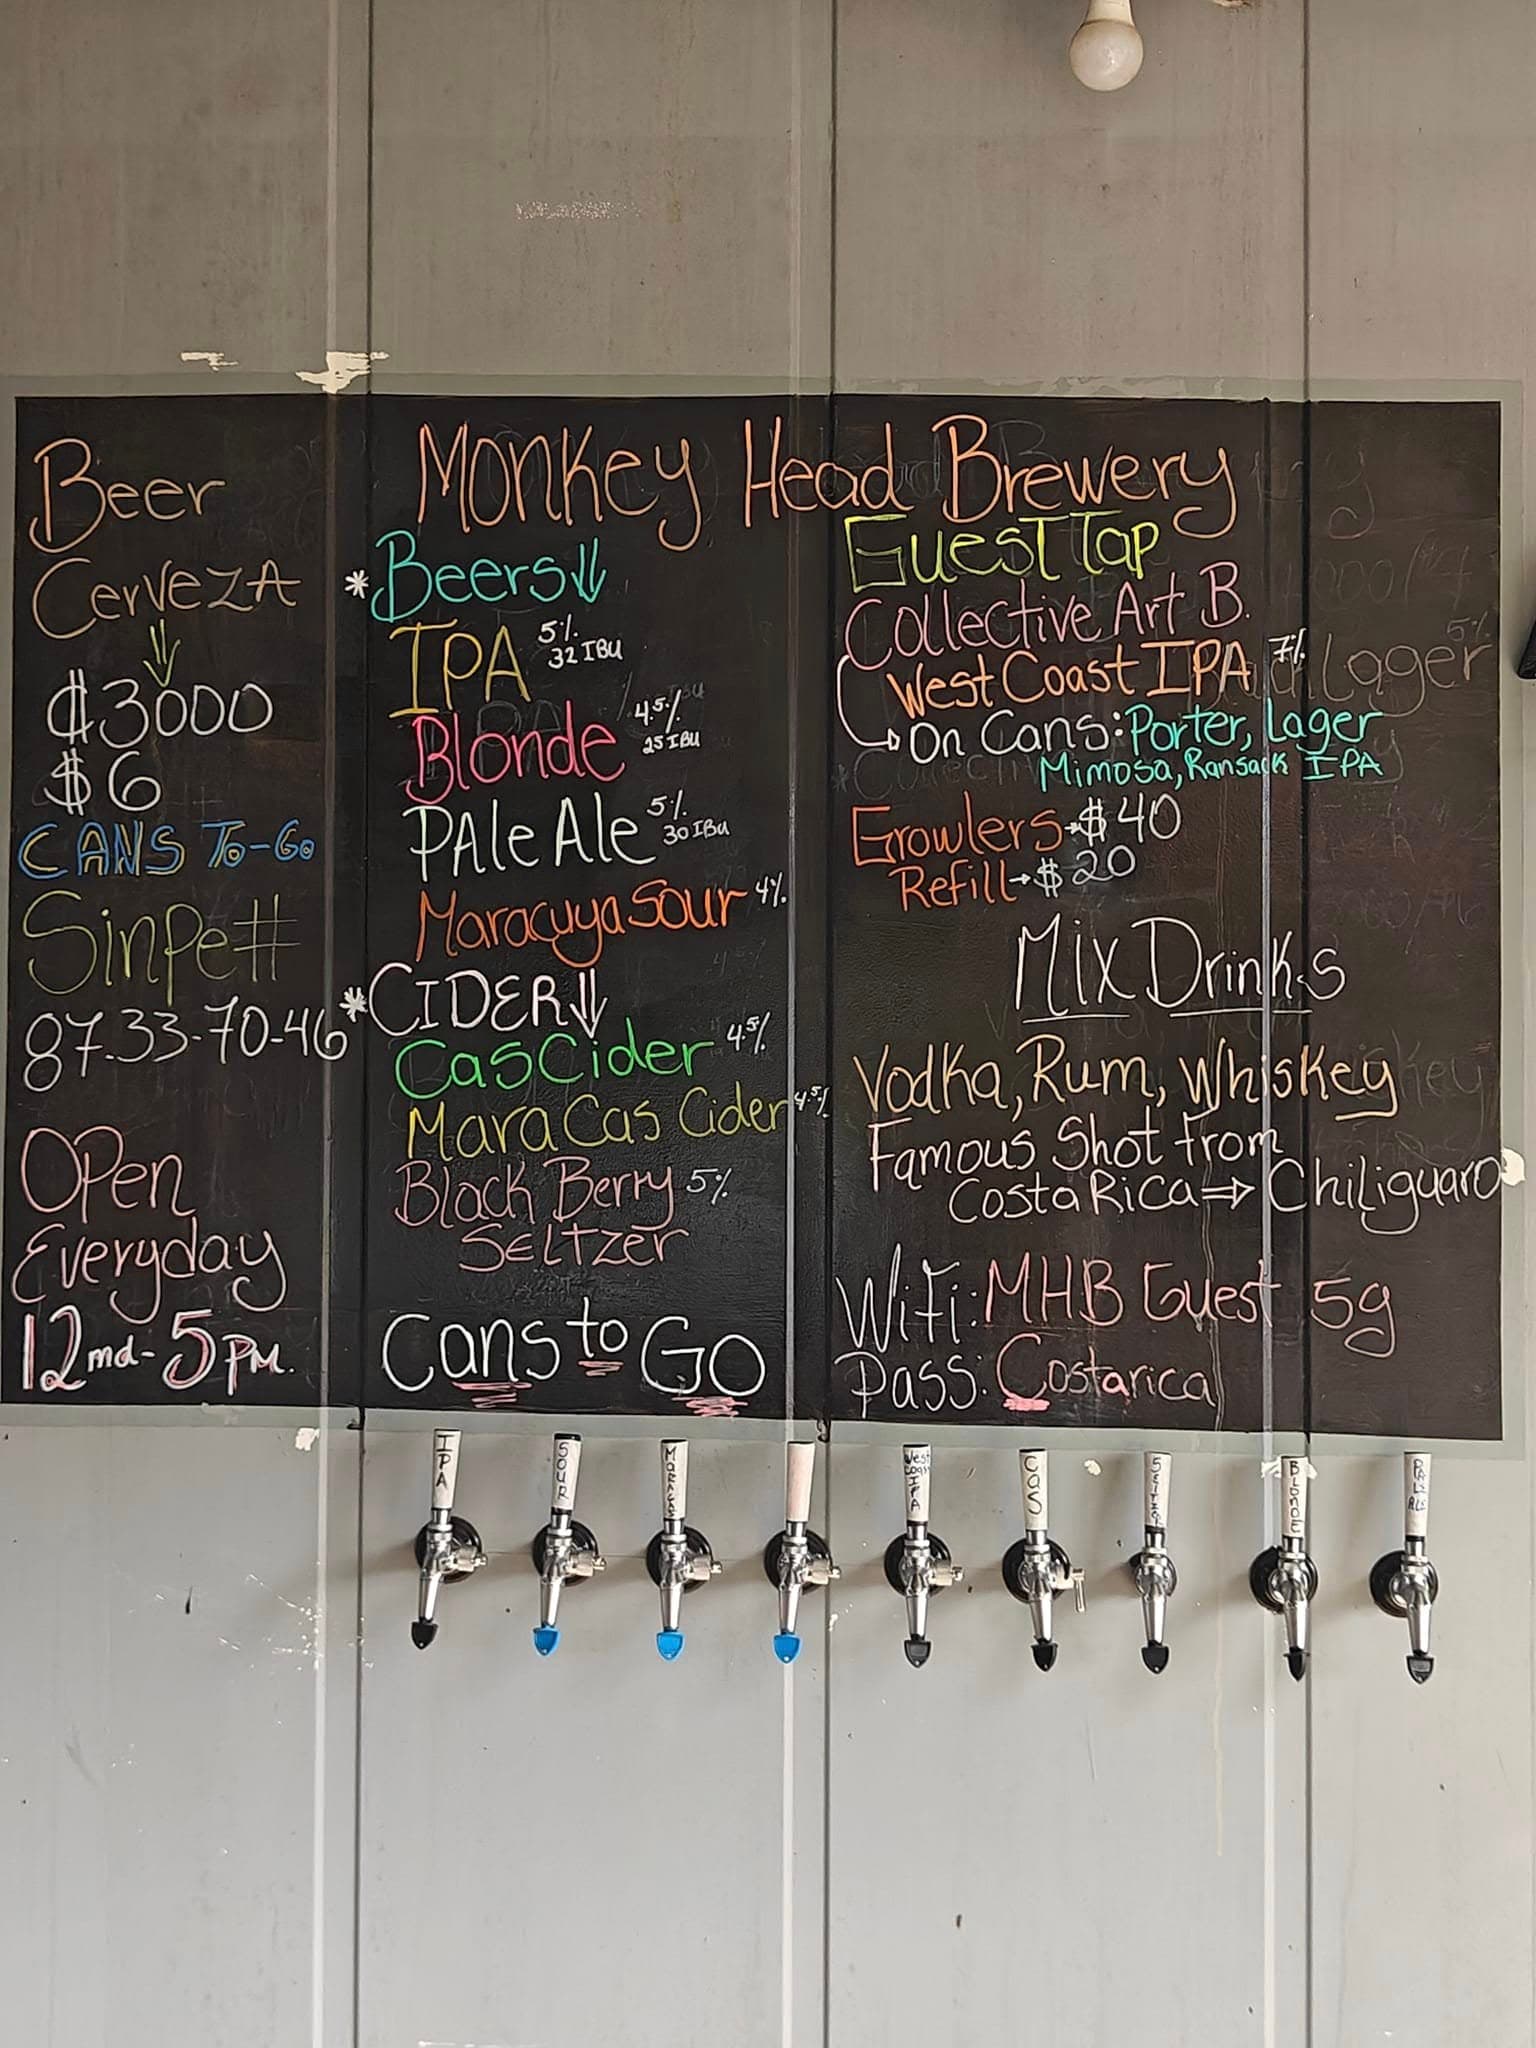 Monkey Head Brewery
Beer
Cerveza
₡3000
$6
CANS To-Go
Sinpe#
87-33-70-46
Open
Everyday
12md-5PM.
*Beers
IPA 5% 32 IBU
Blonde 4.5% 25 IBU
PAle Ale 5% 30 IBU
Maracuya Sour 4%
*CIDER
Cas Cider 4.5%
Mara Cas Cider 4.5%
Black Berry 5%
Seltzer
Cans to GO
Guest Tap
Collective Art B.
West Coast IPA 7%
On Cans: Porter, Lager
Mimosa, Ransack IPA
Growlers→$40
Refill→$20
Mix Drinks
Vodka, Rum, Whiskey
Famous Shot from
Costa Rica⇒Chiliguaro
WiFi: MHB Guest 5g
Pass: Costarica
IPA
SOUR
West Coast IPA
CAS
BLONDE
PALE ALE